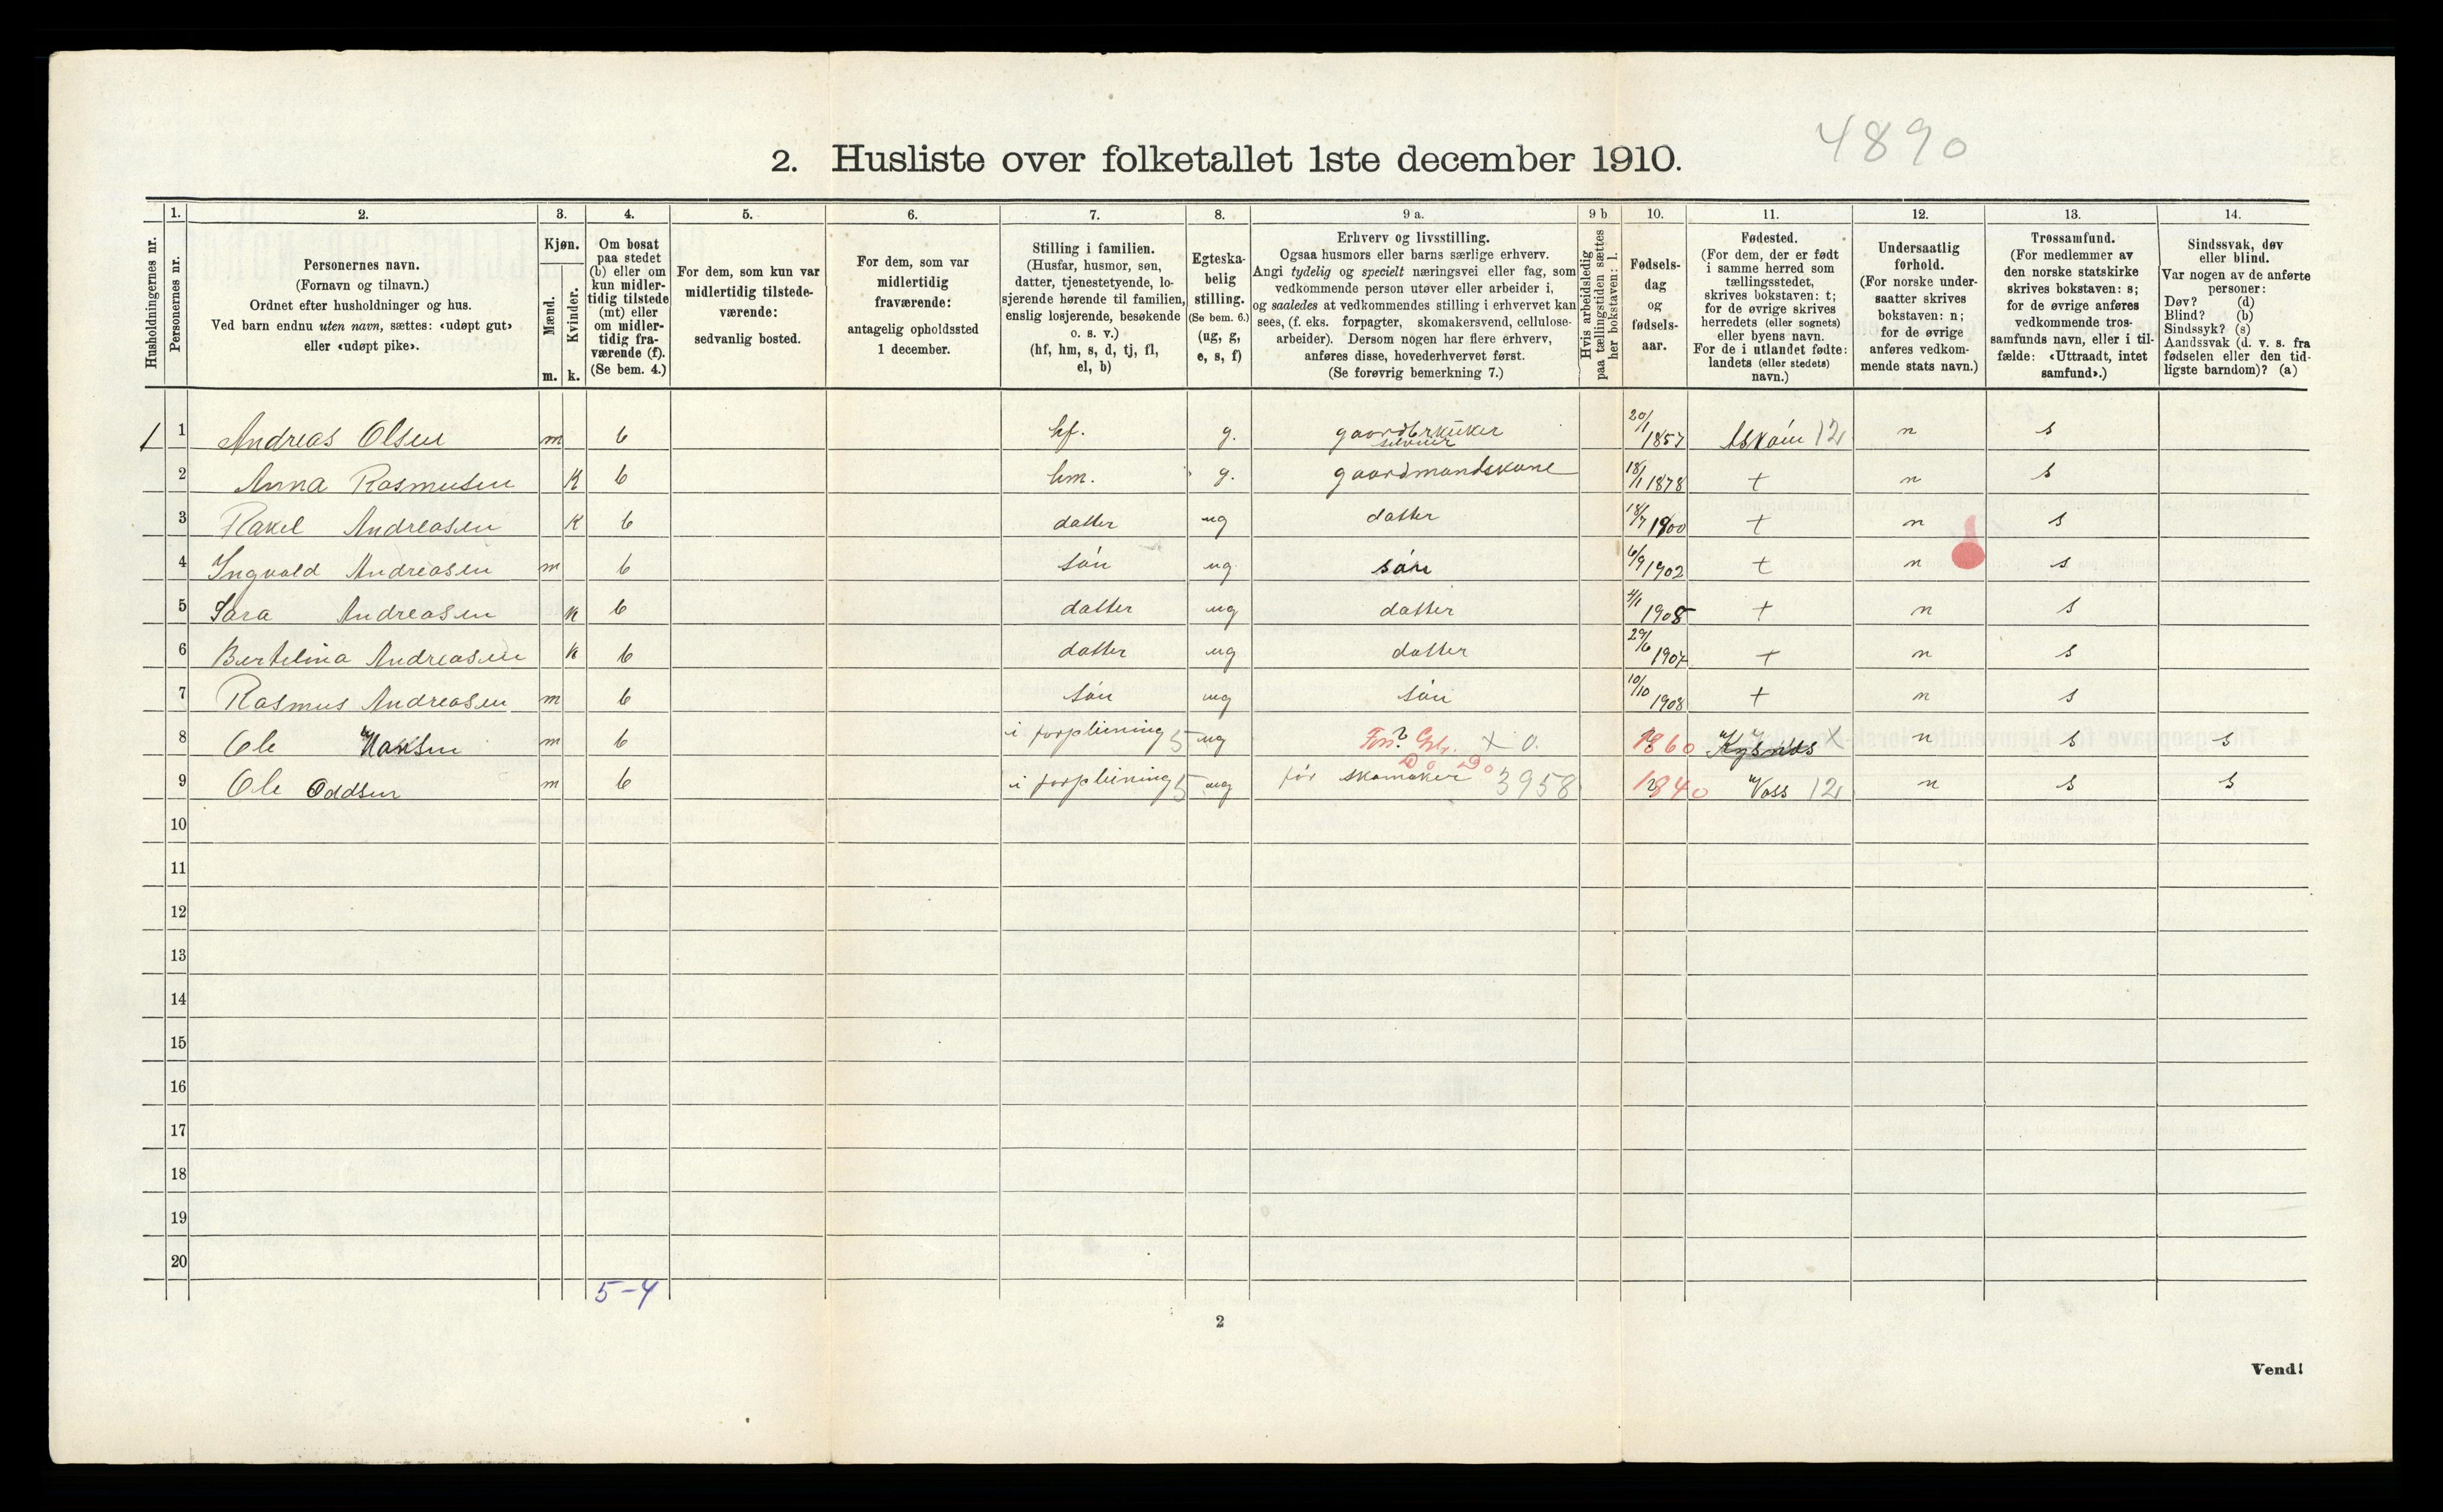 4890
2. Husliste over folketallet 1ste december 1910.
Husholdningernes nr.
1.
Personernes nr.
2.
Personernes navn.
(Fornavn og tilnavn.)
Ordnet efter husholdninger og hus.
Ved barn endnu uten navn, sættes: «udøpt gut»
eller «udøpt pike».
3.
Kjøn.
Mænd.
Kvinder.
m. k.
4.
Om bosat
paa stedet
(b) eller om
kun midler-
tidig tilstede
(mt) eller
om midler-
tidig fra-
værende (f).
(Se bem. 4.)
5.
For dem, som kun var
midlertidig tilstede-
værende:
sedvanlig bosted.
6.
For dem, som var
midlertidig
fraværende:
antagelig opholdssted
1 december.
7.
Stilling i familien.
(Husfar, husmor, søn,
datter, tjenestetyende, lo-
sjerende hørende til familien,
enslig losjerende, besøkende
o. s. v.)
(hf, hm, s, d, tj, fl,
el, b)
8.
Egteska-
belig
stilling.
(Se bem. 6.)
(ug, g,
e, s, f)
9 a.
Erhverv og livsstilling.
Ogsaa husmors eller barns særlige erhverv.
Angi tydelig og specielt næringsvei eller fag, som
vedkommende person utøver eller arbeider i,
og saaledes at vedkommendes stilling i erhvervet kan
sees, (f. eks. forpagter, skomakersvend, cellulose-
arbeider). Dersom nogen har flere erhverv,
anføres disse, hovederhvervet først.
(Se forøvrig bemerkning 7.)
9 b
Hvis arbeidsledig
paa tællingstiden sættes
her bokstaven: l.
10.
Fødsels-
dag
og
fødsels-
aar.
11.
Fødested.
(For dem, der er født
i samme herred som
tællingsstedet,
skrives bokstaven: t;
for de øvrige skrives
herredets (eller sognets)
eller byens navn.
For de i utlandet fødte:
landets (eller stedets)
navn.)
12.
Undersaatlig
forhold.
(For norske under-
saatter skrives
bokstaven: n;
for de øvrige
anføres vedkom-
mende stats navn.)
13.
Trossamfund.
(For medlemmer av
den norske statskirke
skrives bokstaven: s;
for de øvrige anføres
vedkommende tros-
samfunds navn, eller i til-
fælde: «Uttraadt, intet
samfund».)
14.
Sindssvak, døv
eller blind.
Var nogen av de anførte
personer:
Døv? (d)
Blind? (b)
Sindssyk? (s)
Aandssvak (d. v. s. fra
fødselen eller den tid-
ligste barndom)? (a)
1 1 Andreas Olsen m b hf. g. gaardbruker 20/1 1857 12 n s
2 Anna Rasmusen K b hm. g. gaardmandskone 18/1 1878 t n s
3 Rakel Andreasen K b datter ug datter 18/7 1900 t n s
4 Ingvald Andreasen m b són ug són 6/9 1902 t n s
5 Sara Andreasen K b datter ug datter 4/1 1905 t n s
6 Bertelina Andreasen K b datter ug datter 29/6 1907 t n s
7 Rasmus Andreasen m b són ug són 10/10 1908 t n s
8 Ole Hansen m b i forpleining 5 ug ? X 0. 1860 X n s s
9 Ole Oddsen m b i forpleining 5 ug för skomaker 3958 1840 Voss 12 n s s
10
11
12
13
14
15
16
17
18
19
20
5-4
2
Vend!